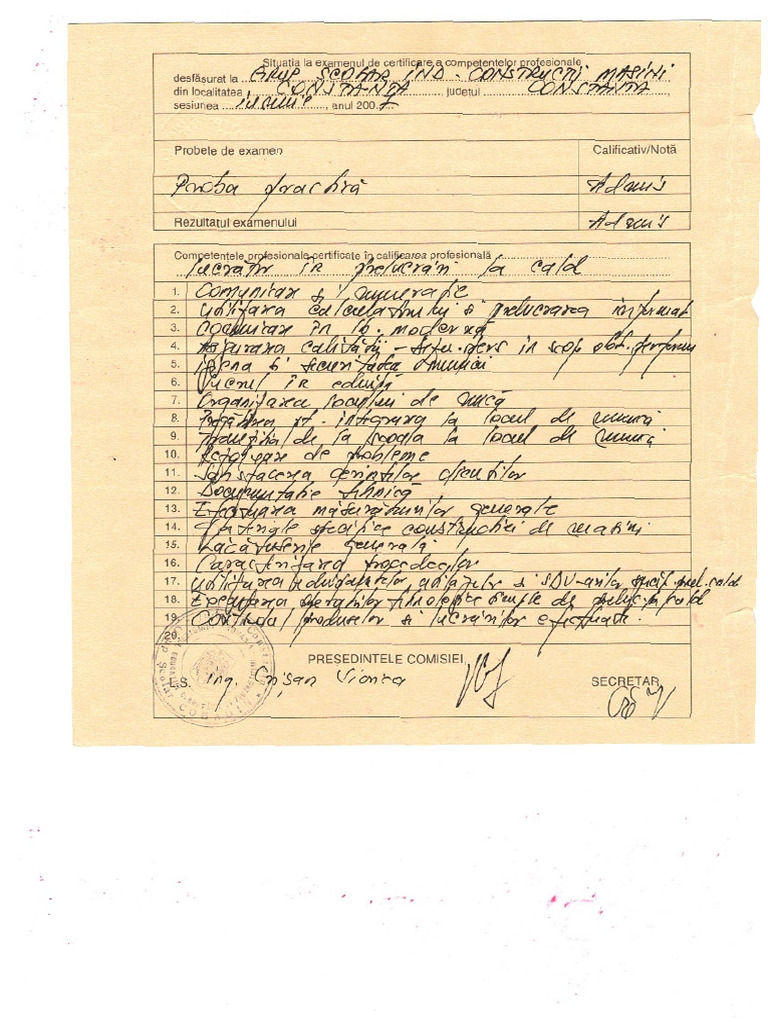 Situaţia la examenul de certificare a competenţelor profesionale
desfăşurat la GRUP ŞCOLAR IND. CONSTRUCTII MASINI
din localitatea CONSTANŢA, judeţul CONSTANTA,
sesiunea iunie, anul 2007
Probele de examen Calificativ/Notă
Proba practică Admis
Rezultatul examenului Admis
Competenţele profesionale certificate în calificarea profesională
lucrător în prelucrări la cald
1. Comunicare şi numeraţie
2. Utilizarea calculatorului si prelucrarea informat
3. Comunicare în lb. modernă
4. Asigurarea calităţii
5. Igiena si securitatea muncii
6. Lucrul în echipă
7. Organizarea locului de muncă
8. Pregătirea pt. integrarea la locul de muncă
9. Tranziţia de la scoala la locul de muncă
10. Rezolvare de probleme
11. Satisfacerea cerinţelor clienţilor
12. Documentatie tehnică
13. Efectuarea măsurătorilor generale
14. Materiale specifice constructiei de masini
15. Lăcătuserie generală
16. Caracterizarea procedeelor
17. Utilizarea utilajelor si SDV-urilor specif. prel. cald
18. Executarea operatiilor tehnologice simple de preluc. la cald
19. Controlul produselor si lucrărilor efectuate.
20.
PRESEDINTELE COMISIEI,
L.S. Ing. Crişan Viorica SECRETAR,